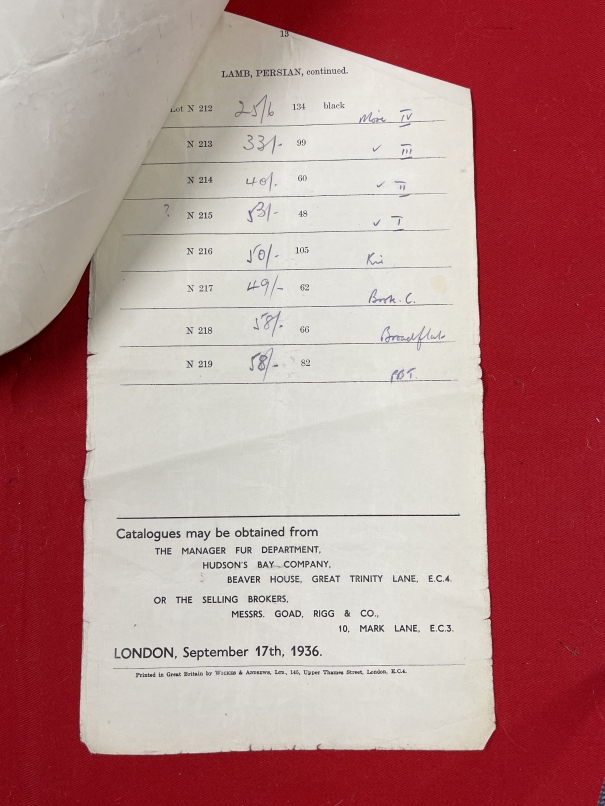 13
LAMB, PERSIAN, continued.
Lot N 212 25/6 134 black Moire IV
N 213 33/- 99 ✓ III
N 214 40/. 60 ✓ II
? N 215 53/- 48 ✓ I
N 216 50/- 105
N 217 49/- 62 Book. C.
N 218 58/. 66 Broadflat
N 219 58/- 82
Catalogues may be obtained from
THE MANAGER FUR DEPARTMENT,
HUDSON'S BAY COMPANY,
BEAVER HOUSE, GREAT TRINITY LANE, E.C.4.
OR THE SELLING BROKERS,
MESSRS. GOAD, RIGG & CO.,
10, MARK LANE, E.C.3.
LONDON, September 17th, 1936.
Printed in Great Britain by WICKES & ANDREWS, LTD., 145, Upper Thames Street, London, E.C.4.